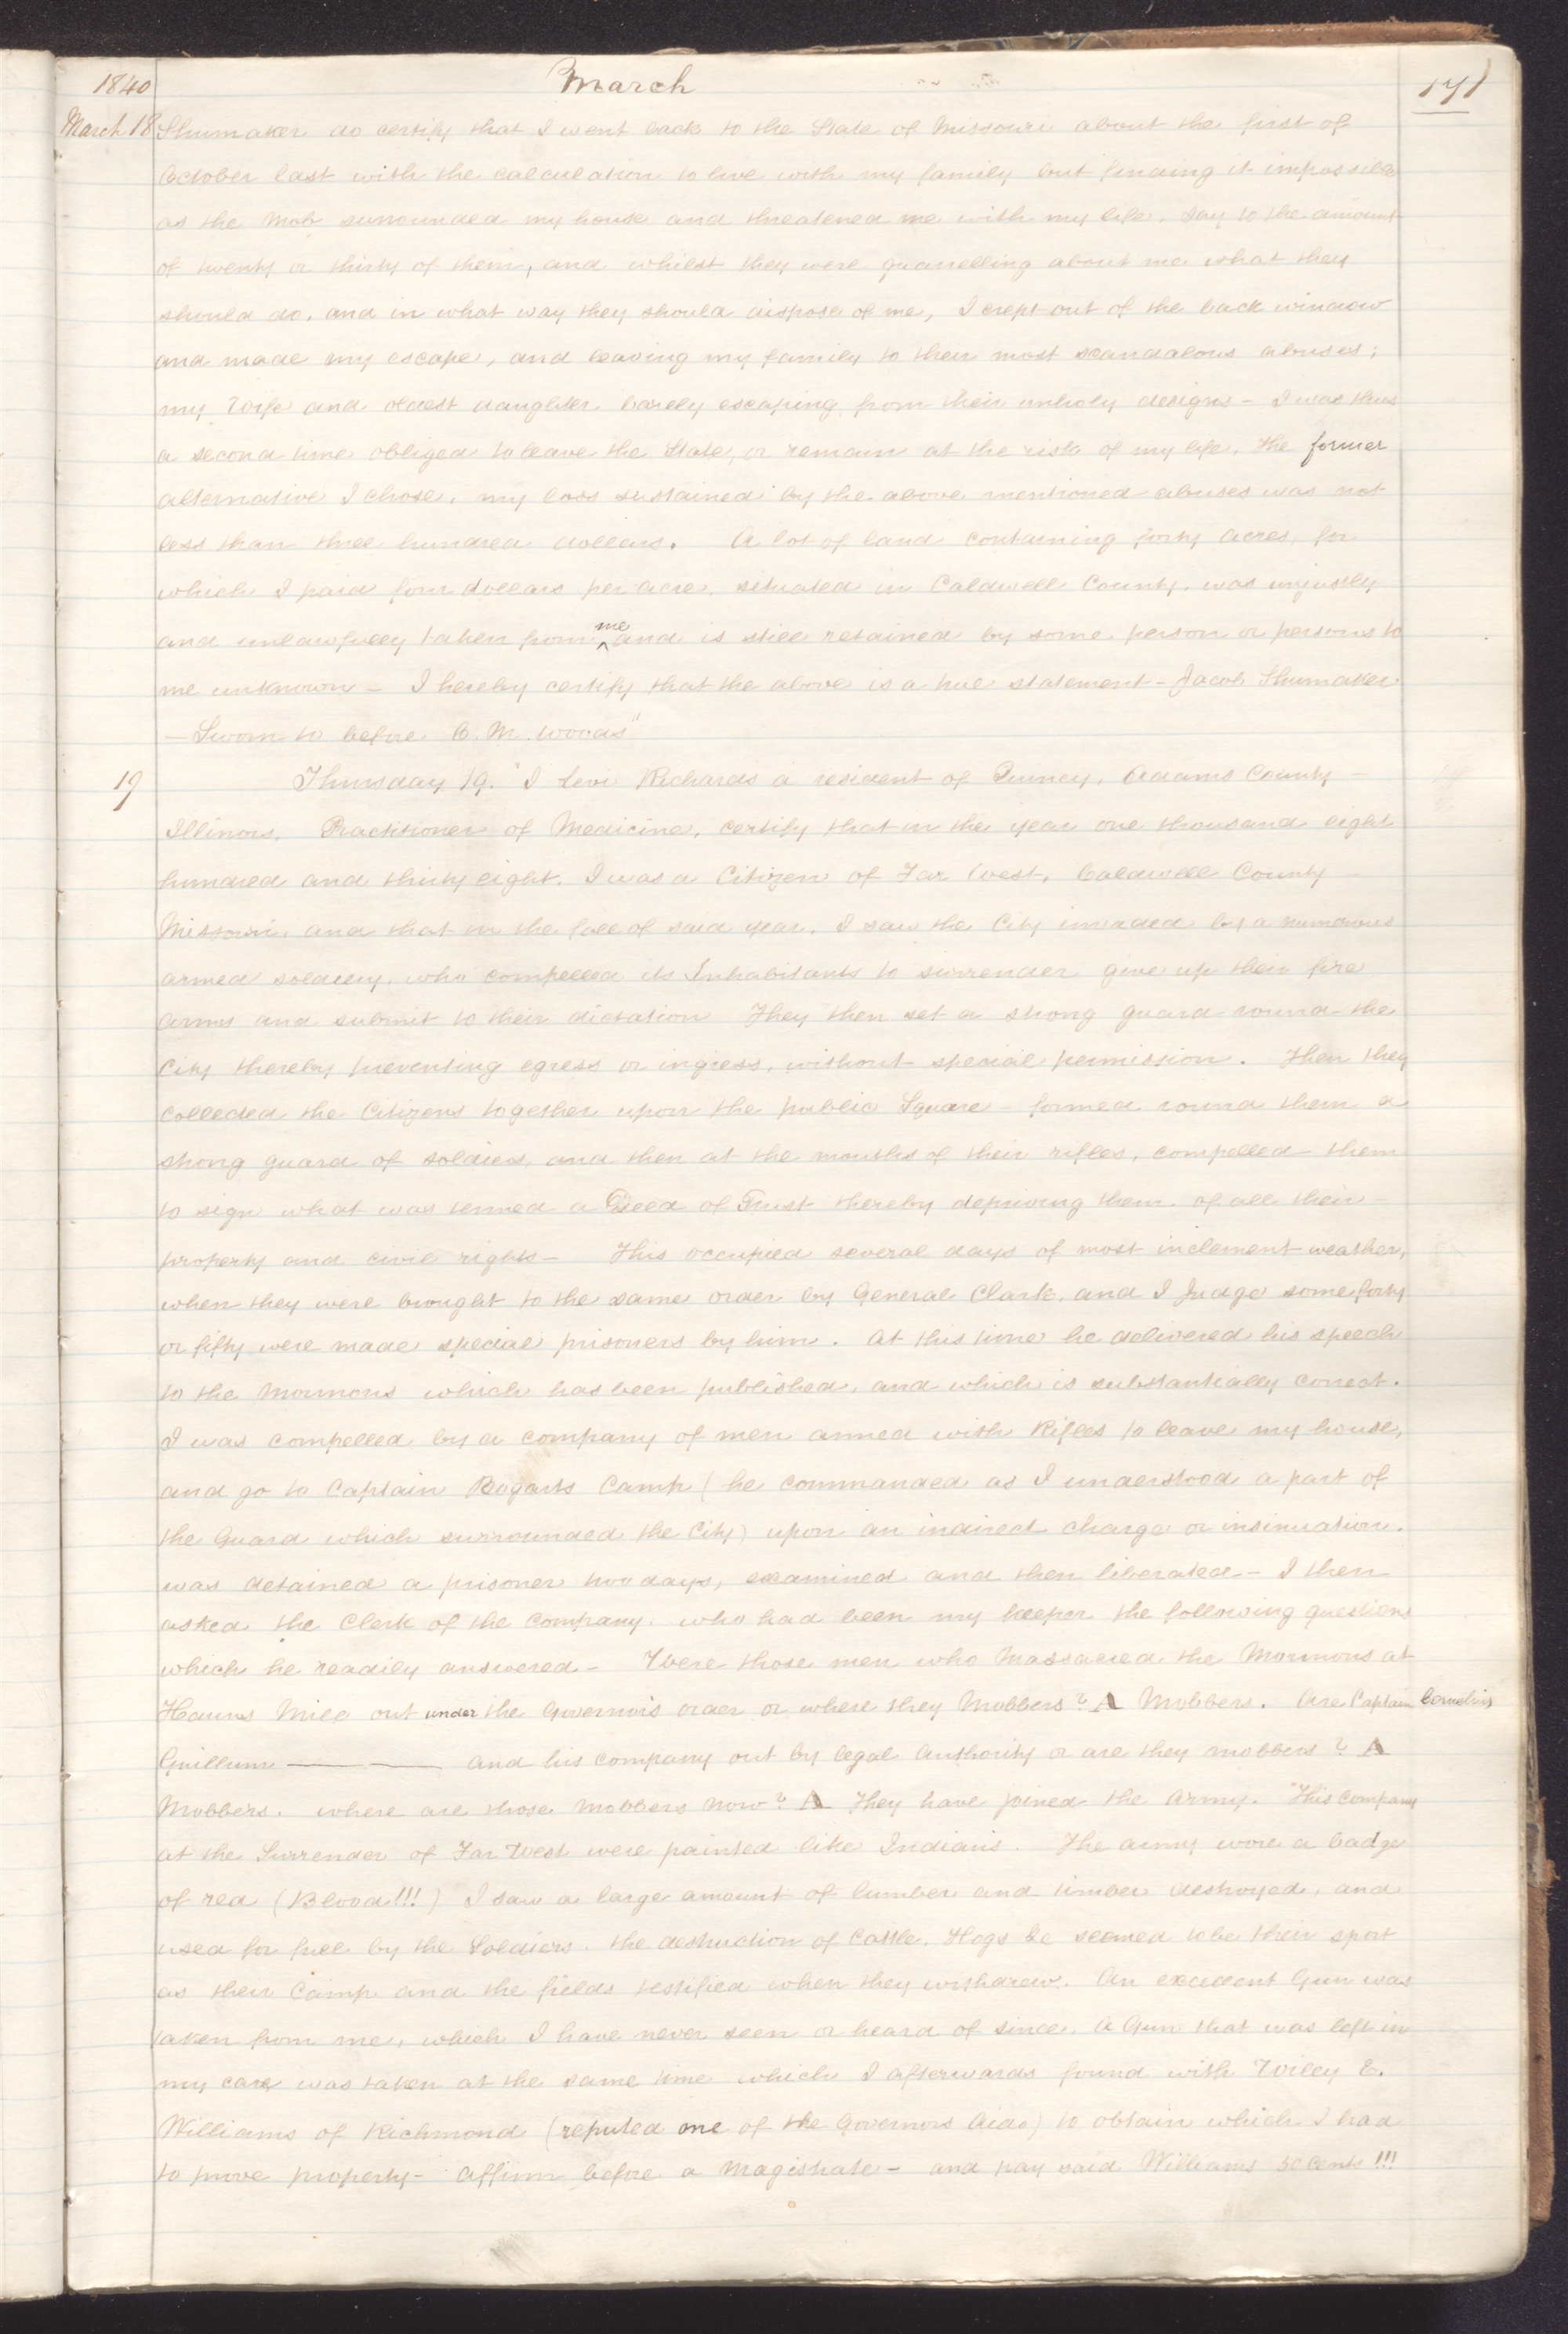 1840 March 171
March 18 Shumaker do certify that I went back to the State of Missouri about the first of
October last with the calculation to live with my family but finding it impossible
as the Mob surrounded my house and threatened me with my life, say to the amount
of twenty or thirty of them, and whilst they were quarrelling about me what they
should do, and in what way they should dispose of me, I crept out of the back window
and made my escape, and leaving my family to their most scandalous abuses;
my Wife and oldest daughter barely escaping from their unholy designs – I was thus
a second time obliged to leave the State, or remain at the risk of my life, the former
alternative I chose, my loss sustained by the above mentioned abuses was not
less than three hundred dollars. A lot of land containing forty acres, for
which I paid four dollars per acre, situated in Caldwell County, was unjustly
and unlawfully taken from me and is still retained by some person or persons to
me unknown – I hereby certify that the above is a true statement – Jacob Shumaker
– Sworn to before C. M. Woods"
19 Thursday 19. "I Levi Richards a resident of Quincy, Adams County –
Illinois, Practitioner of Medicine, certify that in the year one thousand eight
hundred and thirty eight, I was a Citizen of Far West, Caldwell County –
Missouri, and that in the fall of said year, I saw the City invaded by a numerous
armed soldiery, who compelled its Inhabitants to surrender give up their fire
arms and submit to their dictation They then set a strong guard round the
City thereby preventing egress or ingress, without special permission. Then they
collected the Citizens together upon the public Square – formed round them a
strong guard of soldiers, and then at the mouths of their rifles, compelled them
to sign what was termed a Deed of Trust thereby depriving them of all their –
property and civil rights – This occupied several days of most inclement weather,
when they were brought to the same order by General Clark, and I Judge some forty
or fifty were made special prisoners by him. At this time he delivered his speech
to the Mormons which has been published, and which is substantially correct.
I was compelled by a company of men armed with Rifles to leave my house,
and go to Captain Bogarts Camp (he commanded as I understood a part of
the Guard which surrounded the City) upon an indirect charge or insinuation.
was detained a prisoner two days, examined and then liberated – I then
asked the Clerk of the Company, who had been my keeper the following questions
which he readily answered – Were those men who Massacred the Mormons at
Hauns Mill out under the Governor's order or where they Mobbers? A Mobbers. Are Captain Cornelius
Guillum ——— and his company out by legal Authority or are they mobbers? A
Mobbers. where are those Mobbers now? A They have joined the Army. "This Company
at the Surrender of Far West were painted like Indians. The army wore a badge
of red (Blood!!!) I saw a large amount of lumber and timber destroyed, and
used for fuel by the Soldiers. the destruction of Cattle, Hogs &c seemed to be their sport
as their Camp and the fields testified when they withdrew. An excellent Gun was
taken from me, which I have never seen or heard of since. A Gun that was left in
my care was taken at the same time which I afterwards found with Wiley E.
Williams of Richmond (reputed one of the Governors Aids) to obtain which I had
to prove property – affirm before a Magistrate – and pay said Williams 50 Cents!!!